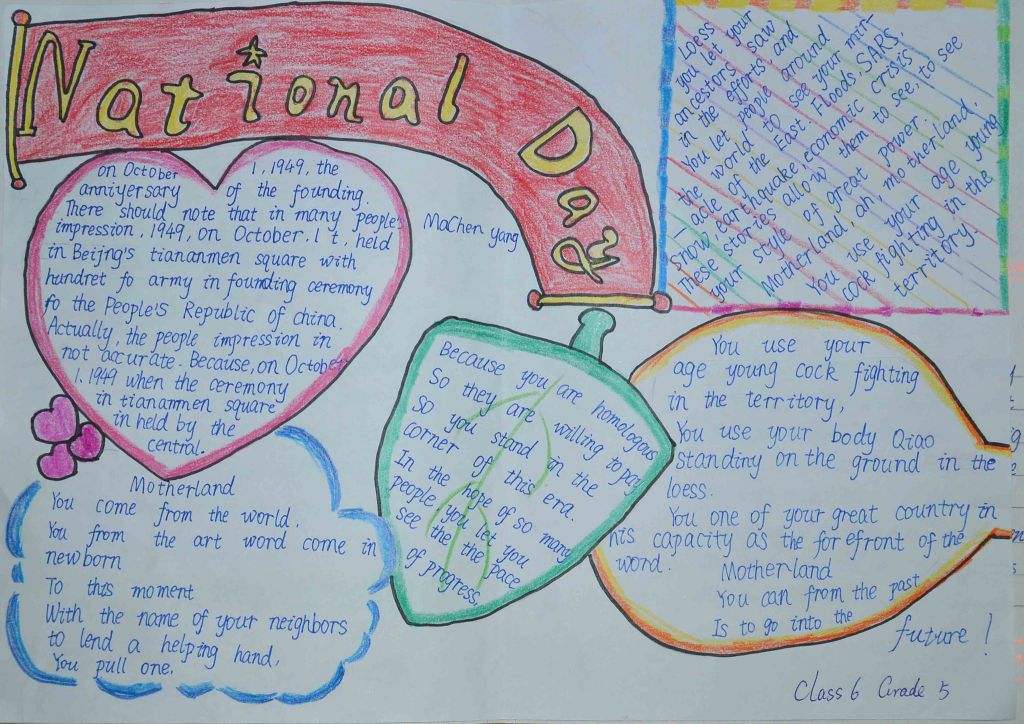 National Day
on October 1, 1949, the
anniyersary of the founding.
There should note that in many people's
impression, 1949, on October. 1 t, held
in Beijing's tiananmen square with
hundret fo army in founding ceremony
fo the People's Republic of china.
Actually, the people impression in
not accurate. Because, on October
1. 1949 when the ceremony
in tiananmen square
in held by the
central.
MaChen Yang
Loess
you let your
ancestors saw
in the efforts and
You let people around
the world to see your mir-
acle of the East. Floods, SARS,
snow earthquake, economic crisis
These stories allow them to see, to see
your style of great power.
Motherland ah, motherland,
You use your age young
cock fighting in the
territory.
Because you are homologous
So they are willing to pay
So you stand in the
corner of this era.
In the hope of so many
people you let you
see the the pace
of progress
You use your
age young cock fighting
in the territory,
You use your body Qiao
standiny on the ground in the
loess.
You one of your great country in
his capacity as the forefront of the
word.
Motherland
You can from the past
Is to go into the
future!
Motherland
You come from the world.
You from the art word come in
newborn
To this moment
With the name of your neighbors
to lend a helping hand,
You pull one.
Class 6 Grade 5